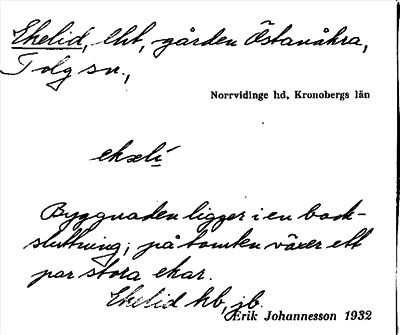 Ekelid, lht, gården Östanåkra,
Tolg sn.,
Norrvidinge hd, Kronobergs län
ekəlí
Byggnaden ligger i en back-
sluttning; på tomten växer ett
par stora ekar.
Ekelid hb, jb.
Erik Johannesson 1932